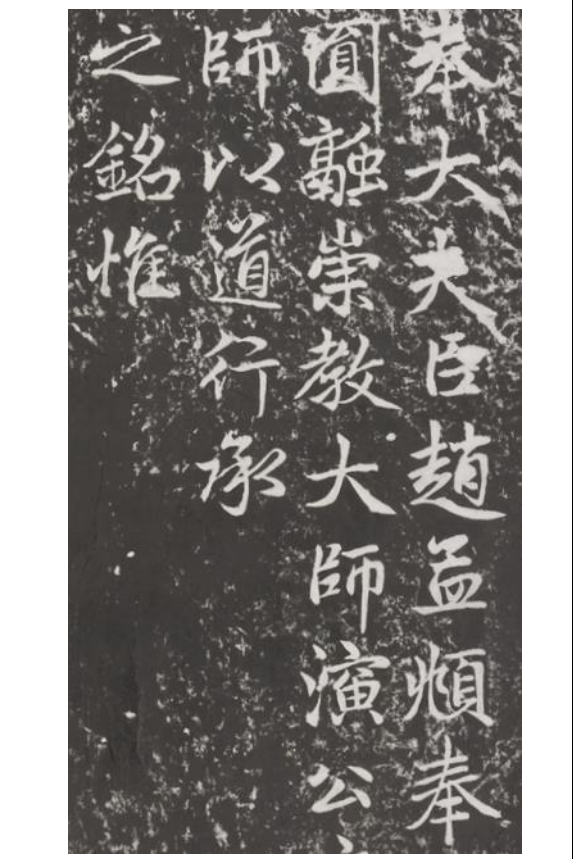 奉大夫臣趙孟頫奉
圓融崇教大師演公
師以道行承
之銘惟